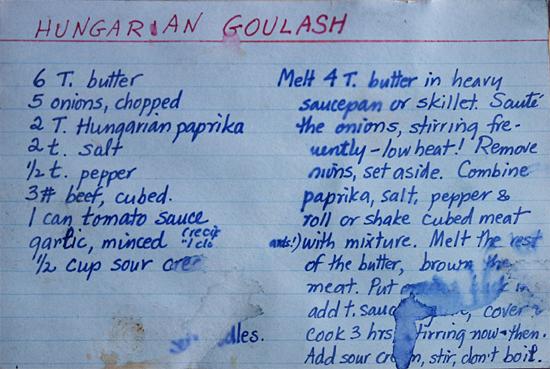 HUNGARIAN GOULASH
6 T. butter
5 onions, chopped
2 T. Hungarian paprika
2 t. salt
1/2 t. pepper
3# beef, cubed.
1 can tomato sauce
garlic, minced
1/2 cup sour
Melt 4 T. butter in heavy
saucepan or skillet. Sauté
the onions, stirring fre-
uently - low heat! Remove
set aside. Combine
paprika, salt, pepper &
roll or shake cubed meat
with mixture. Melt the rest
of the butter, brown the
meat. Put
add t. cover &
Cook 3 hrs, stirring now & then.
Add sour stir, don't boil.